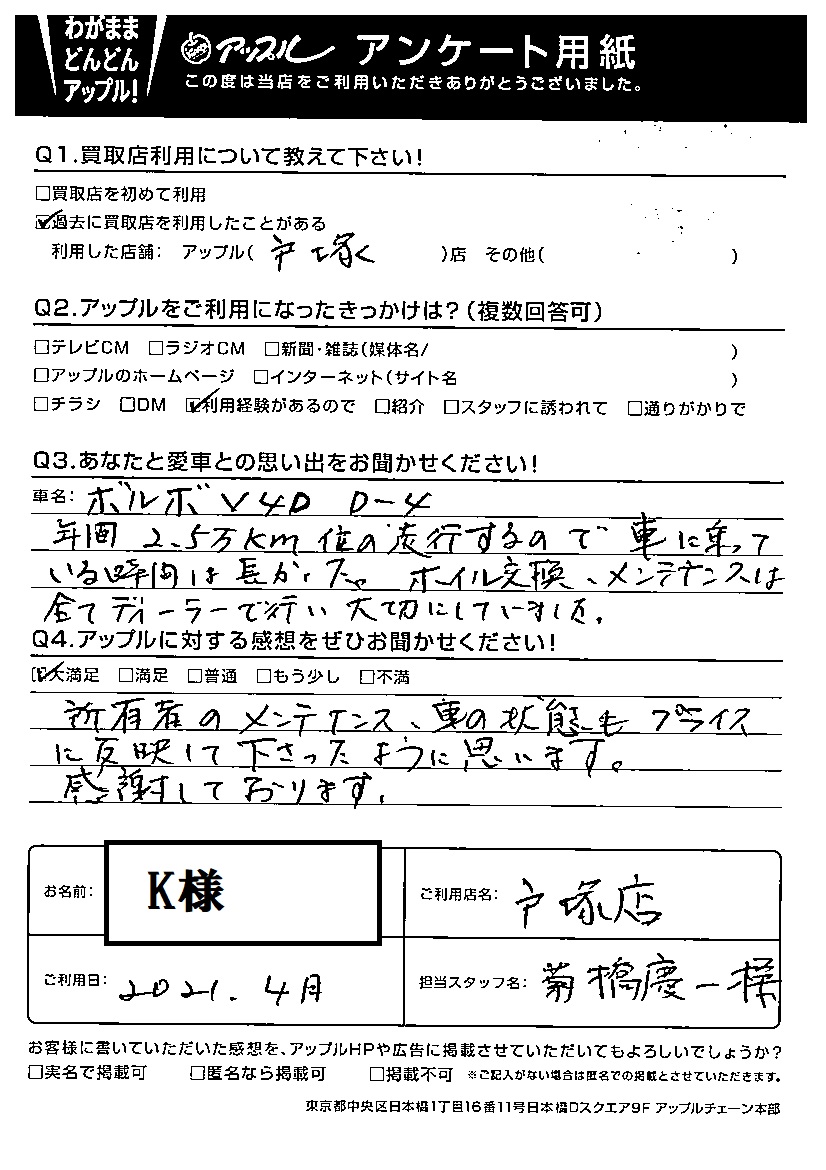 わがまま
どんどん
アップル!
アップル アンケート用紙
この度は当店をご利用いただきありがとうございました。
Q1.買取店利用について教えて下さい!
□買取店を初めて利用
☑過去に買取店を利用したことがある
利用した店舗: アップル( 戸塚 )店 その他( )
Q2.アップルをご利用になったきっかけは?(複数回答可)
□テレビCM □ラジオCM □新聞・雑誌(媒体名/ )
□アップルのホームページ □インターネット(サイト名 )
□チラシ □DM ☑利用経験があるので □紹介 □スタッフに誘われて □通りがかりで
Q3.あなたと愛車との思い出をお聞かせください!
車名: ボルボ V40 D-4
年間 2.5万Km位の走行するので車に乗って
いる時間は長かった。ホイル交換、メンテナンスは
全てディーラーで行い大切にしていました。
Q4.アップルに対する感想をぜひお聞かせください!
☑大満足 □満足 □普通 □もう少し □不満
所有者のメンテナンス、車の状態もプライス
に反映して下さったように思います。
感謝しております。
お名前: K様
ご利用店名: 戸塚店
ご利用日: 2021.4月
担当スタッフ名: 菊橋慶一様
お客様に書いていただいた感想を、アップルHPや広告に掲載させていただいてもよろしいでしょうか?
□実名で掲載可 □匿名なら掲載可 □掲載不可 ※ご記入がない場合は匿名での掲載とさせていただきます。
東京都中央区日本橋1丁目16番11号日本橋Dスクエア9F アップルチェーン本部